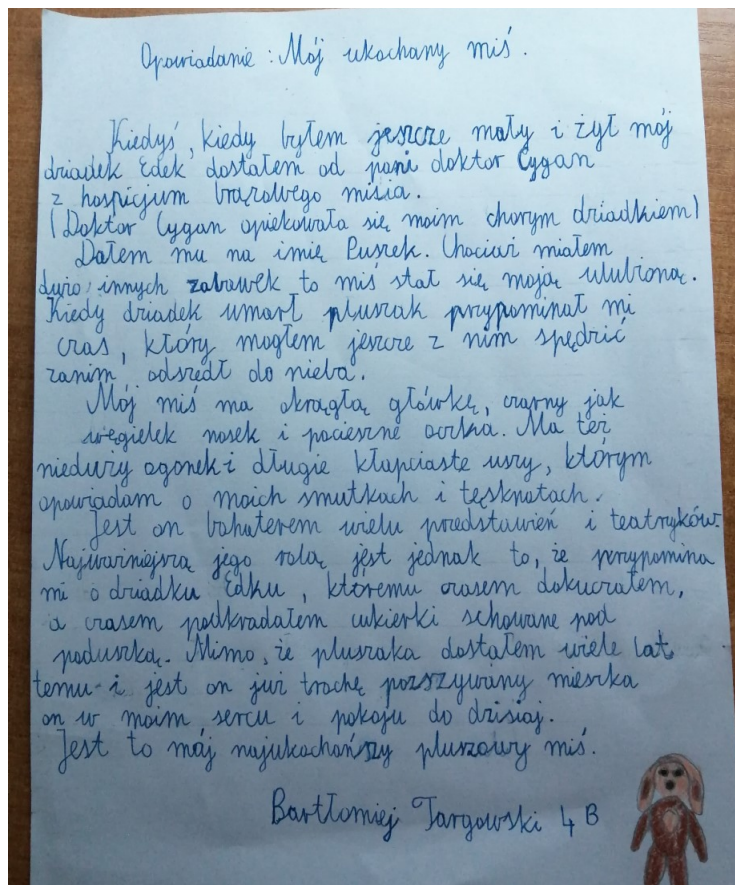 Opowiadanie : Mój ukochany miś .
Kiedyś , kiedy byłem jeszcze mały i żył mój
dziadek Edek dostałem od pani doktor Cygan
z hospicjum brązowego misia .
(Doktor Cygan opiekowała się moim chorym dziadkiem)
Dałem mu na imię Puszek. Chociaż miałem
dużo innych zabawek to miś stał się moją ulubioną.
Kiedy dziadek umarł pluszak przypominał mi
czas , który mogłem jeszcze z nim spędzić
zanim odszedł do nieba .
Mój miś ma okrągłą główkę, czarny jak
węgielek nosek i pocieszne oczka. Ma też
nieduży ogonek i długie kłapciaste uszy, którym
opowiadam o moich smutkach i tęsknotach.
Jest on bohaterem wielu przedstawień i teatryków.
Najważniejszą jego rolą jest jednak to, że przypomina
mi o dziadku Edku , któremu czasem dokuczałem,
a czasem podkradałem cukierki schowane pod
poduszką. Mimo, że pluszaka dostałem wiele lat
temu i jest on już trochę pozszywany mieszka
on w moim sercu i pokoju do dzisiaj.
Jest to mój najukochańszy pluszowy miś.
Bartłomiej Targowski 4 B